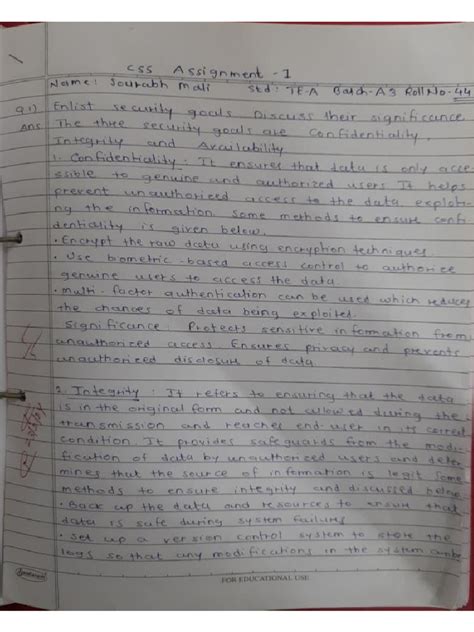 CSS Assignment - 1
Name: Sourabh Mali Std: TE-A Batch-A3 Roll No-44
Q1) Enlist security goals Discuss their significance
Ans The three security goals are Confidentiality,
Integrity and Availability
1. Confidentiality: It ensures that data is only acce
ssible to genuine and authorized users It helps
prevent unauthorized access to the data exploiti
ng the information Some methods to ensure conf
identiality is given below.
• Encrypt the raw data using encryption techniques
• Use biometric-based access control to authorize
genuine users to access the data.
• multi-factor authentication can be used which reduces
the chances of data being exploited.
Significance: Protects sensitive information from
unauthorized access. Ensures privacy and prevents
unauthorized disclosure of data.
2. Integrity: It refers to ensuring that the data
is in the original form and not allowed during the
transmission and reaches end-user in its correct
condition. It provides safeguards from the modi
fication of data by unauthorized users and deter
mines that the source of information is legit Some
methods to ensure integrity and discussed below
• Back up the data and resources to ensure that
data is safe during system failures
• Set up a version control system to store the
logs so that any modifications in the system
FOR EDUCATIONAL USE